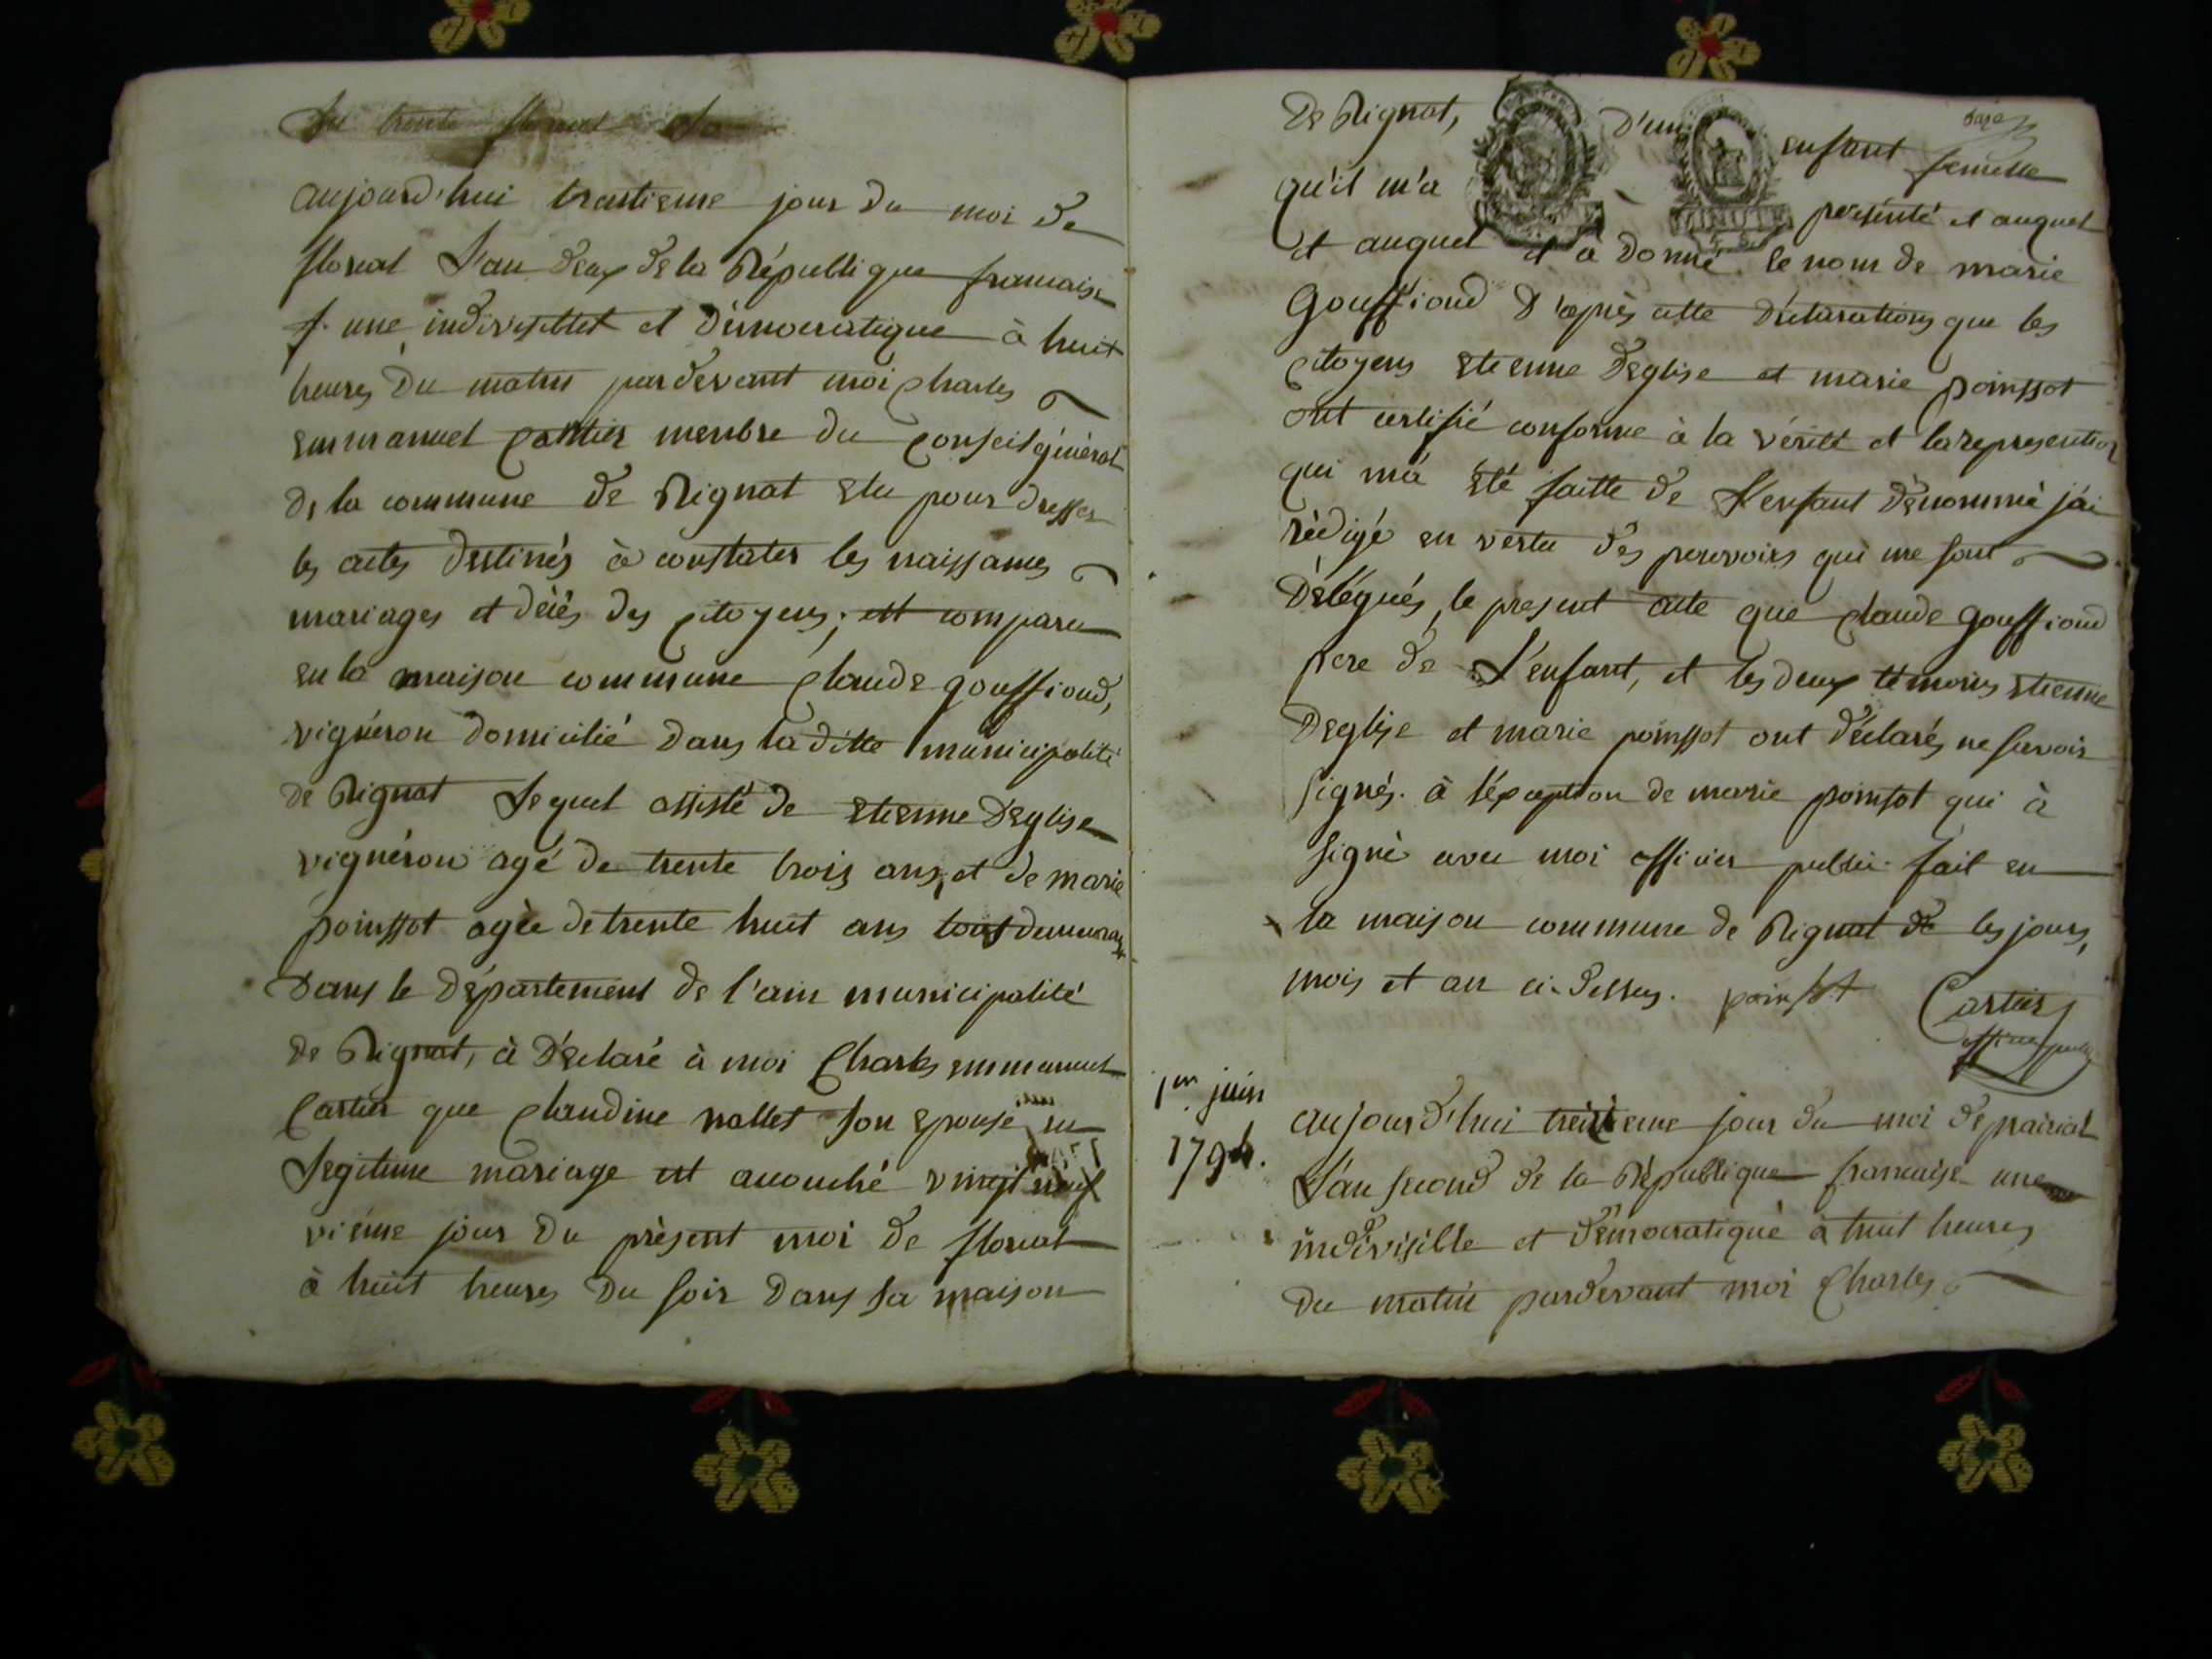 aujourd'hui trantieme jour du moi de
floreal L'an deux de la République francaise
f. une indivisiblet et démocratique à huit
heures du matin pardevant moi charles
emmanuel cartier menbre du conseil général
de la commune de Rignat elu pour dresser
les actes destinés à constater les naissances
mariages et décés des citoyens; est comparu
en la maison commune claude gouffioud,
vignéron domicilié dans la ditte municipalité
de Rignat Lequel assisté de etienne Deglise
vignéron agé de trente trois ans, et de marie
poinssot agée de trente huit ans tous demeurant
dans le département de l'ain municipalité
de Rignat, à déclaré à moi Charles emmanuel
Cartier que claudine nallet son epouse en
Legitime mariage est accouché vingt neuf
vième jour du présent moi de floreal
à huit heures du soir dans sa maison
de Rignat, d'un enfant femelle
qu'il m'a presénté et auquel
et auquel il à donné le nom de marie
Gouffioud d'après cette déclaration que les
citoyens etienne Deglise et marie poinssot
ont certifié conforme à la vérité et la representation
qui m'a été faitte de L'enfant dénommé j'ai
rédigé en vertu des pouvoirs qui me sont
délégués, le present acte que claude gouffioud
pere de L'enfant, et les deux témoins etienne
Deglise et marie poinssot ont déclarés ne savoir
signés. à l'éxception de marie poinsot qui à
signé avec moi officier public. fait en
la maison commune de Rignat de les jours,
mois et an ci-dessus. poinsot Cartier
officier public
1er juin
1794.
aujourd'hui treizieme jour du moi de prairial
L'an second de la République francaise une
indivisible et démocratique à huit heures
du matin pardevant moi Charles